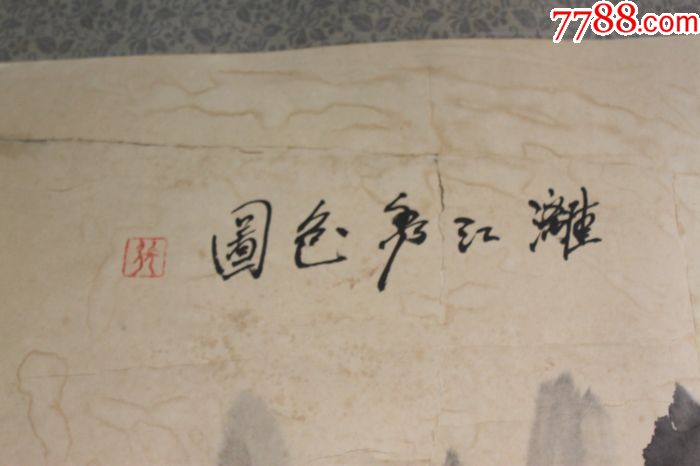 7788.com
灕江秀色圖